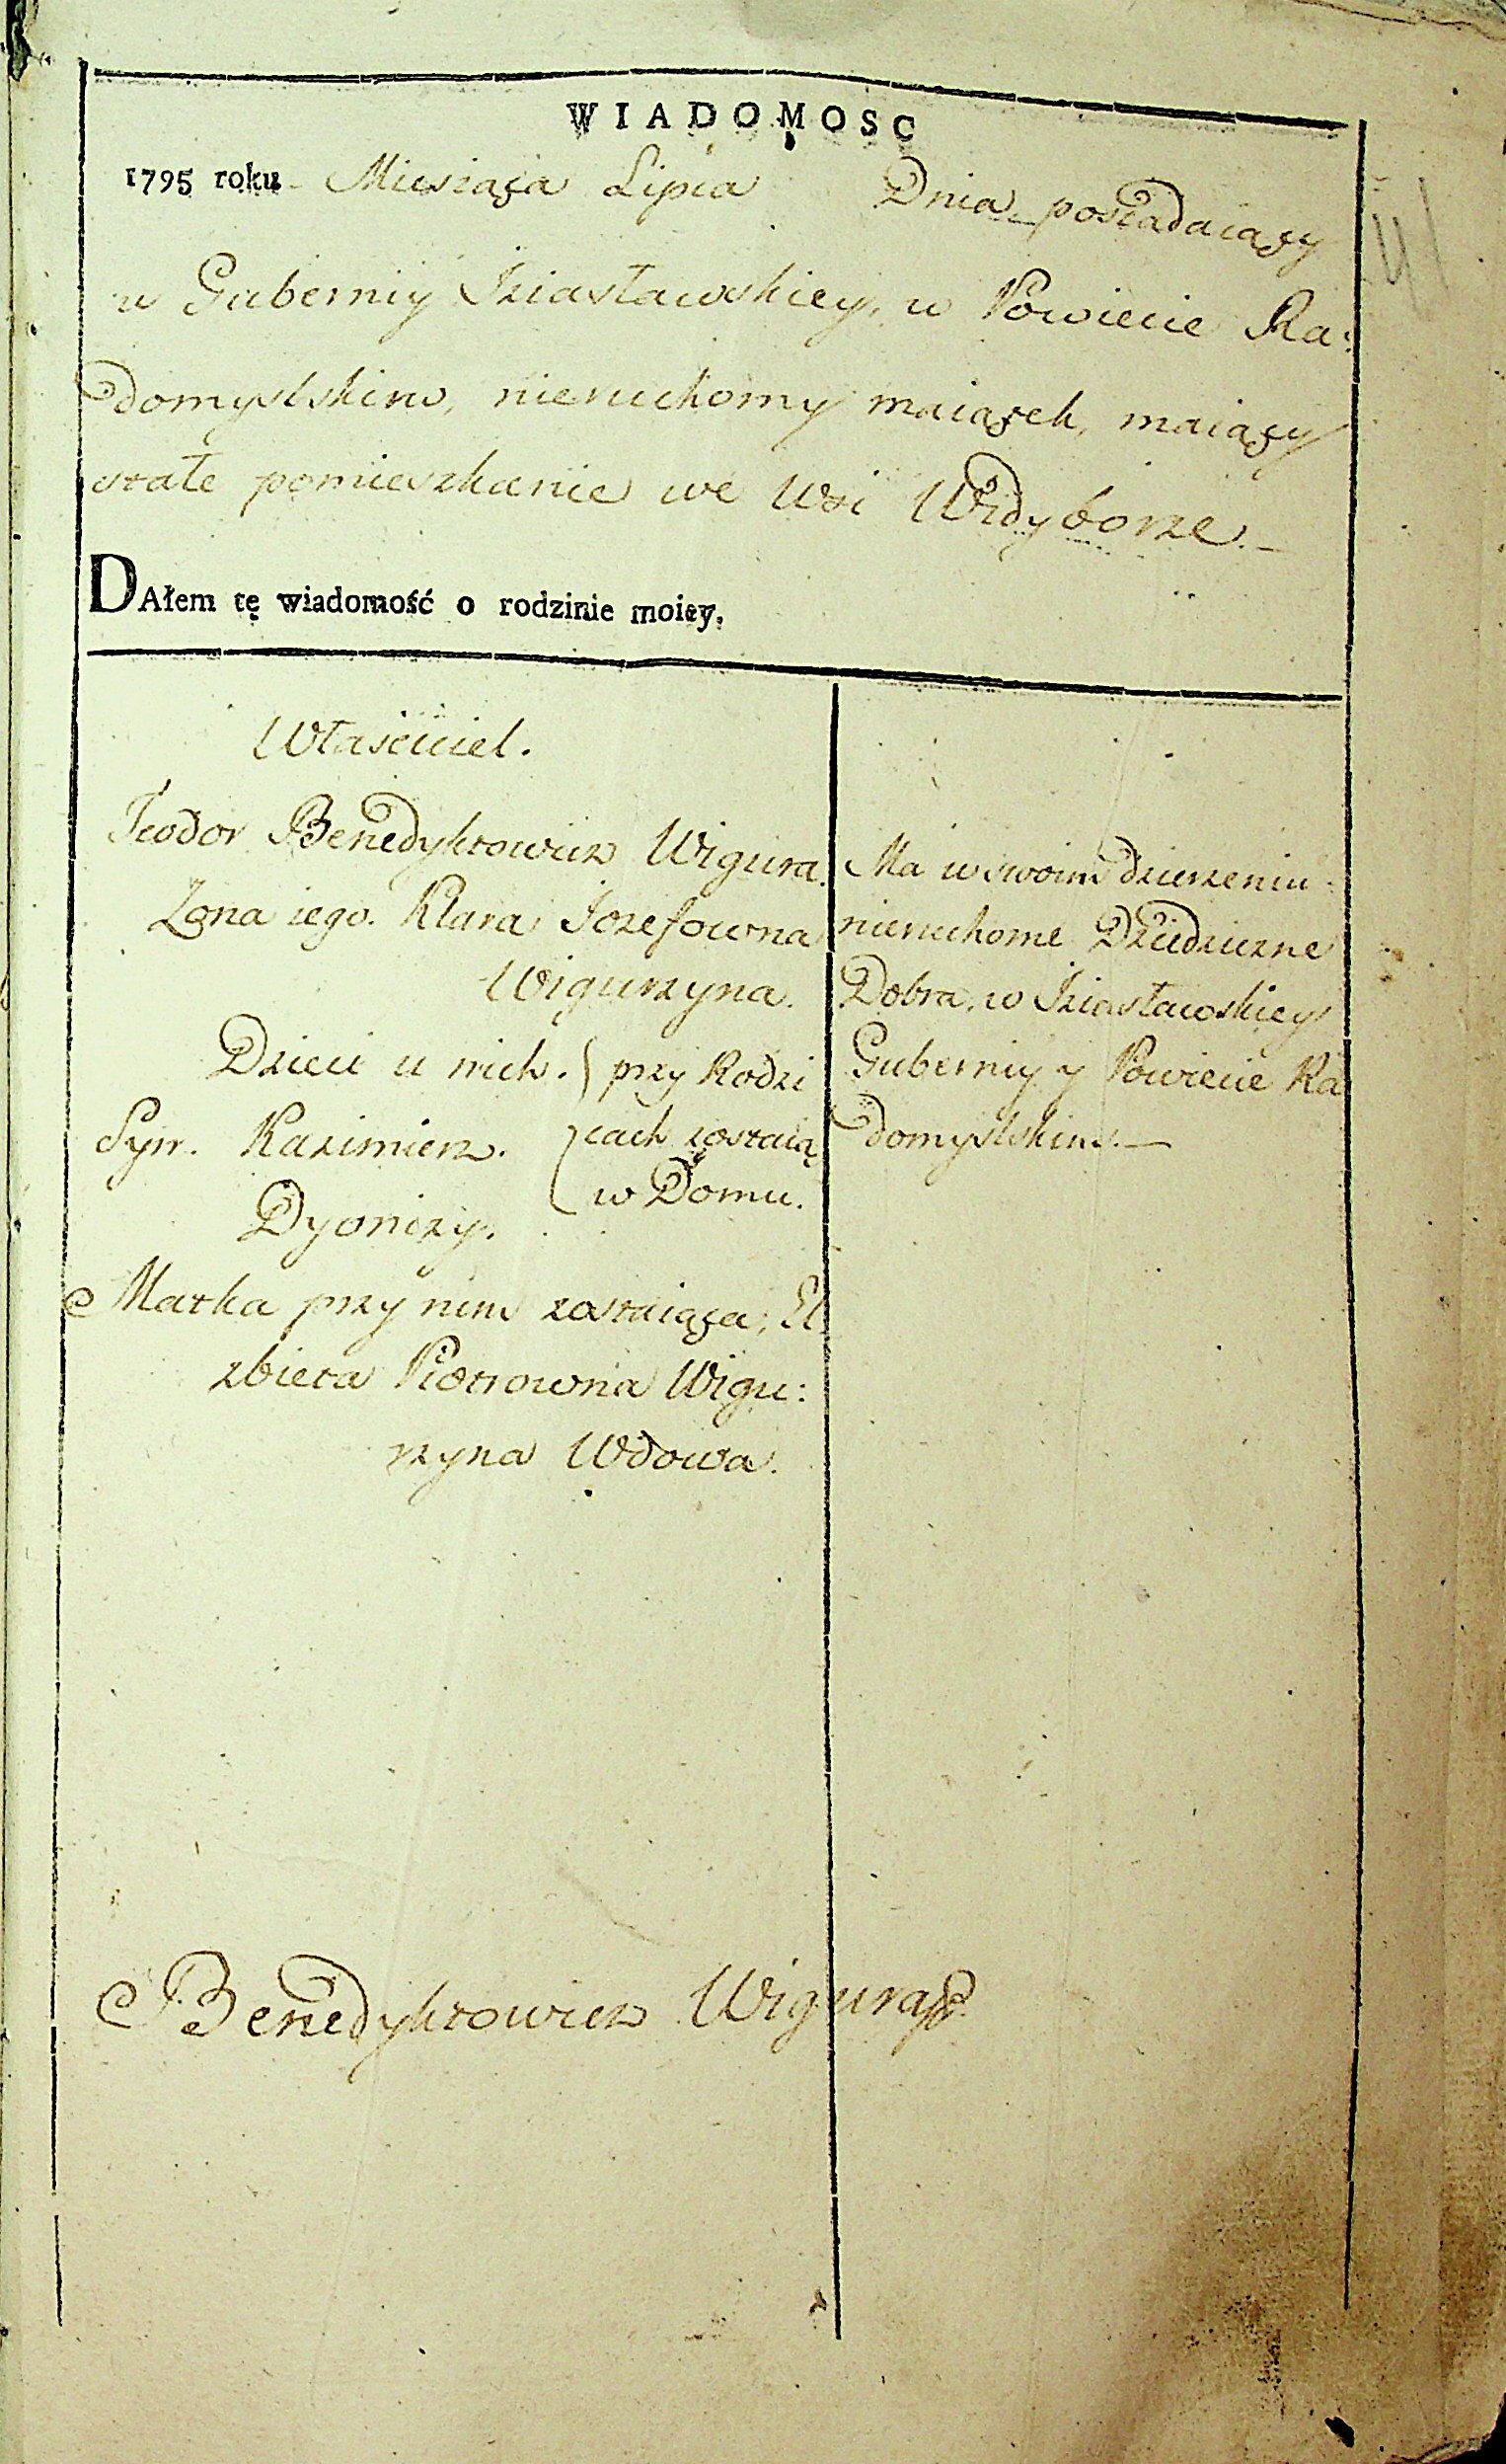 WIADOMOSC
1795 roku Miesząca Lipca Dnia posiadaiący
w Guberniy Iziasławskiey, w Powiecie Ra:
domyslskim, nieruchomy maiątek, maiący
stałe pomieszkanie we Wsi Widyborze.
DAłem tę wiadomość o rodzinie moiey,
Właściciel.
Teodor Benedyktowicz Wigura.
Zona iego. Klara Jozefowna
Wigurzyna.
Dzieci u nich. przy Rodzi
Syn. Kazimierz. cach zostaią
w Domu.
Dyonizy.
Matka przy nim zostaiąca, El
zbieta Piotrowna Wigu:
rzyna Wdowa.
Ma w swoim dzierzeniu
nieruchome Dziedziczne
Dobra, w Iziasławskiey
Guberniy y Powiecie Ra
domyslskim.
Benedyktowicz Wigura
41